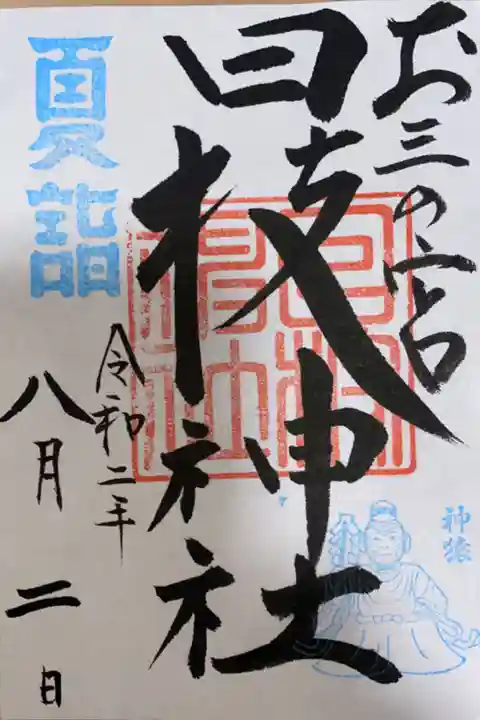 お三の宮
日枝神社
夏詣
令和二年
八月二日
神猿